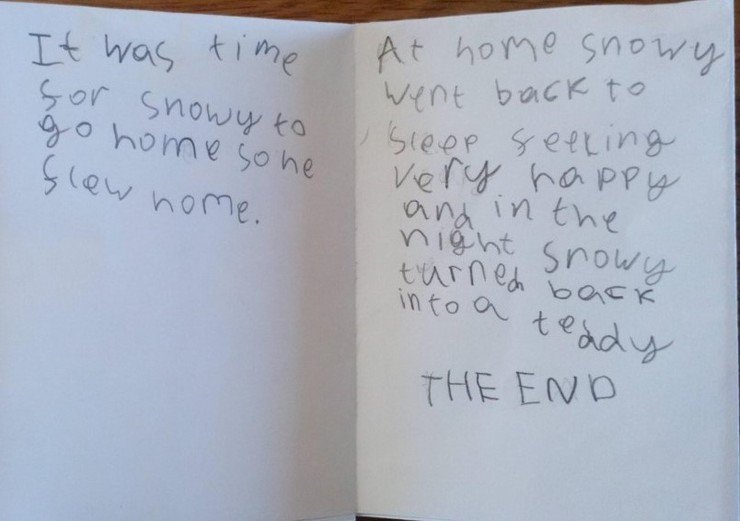 It was time
for snowy to
go home so he
flew home.
At home snowy
went back to
sleep feeling
very happy
and in the
night snowy
turned back
into a teddy
THE END